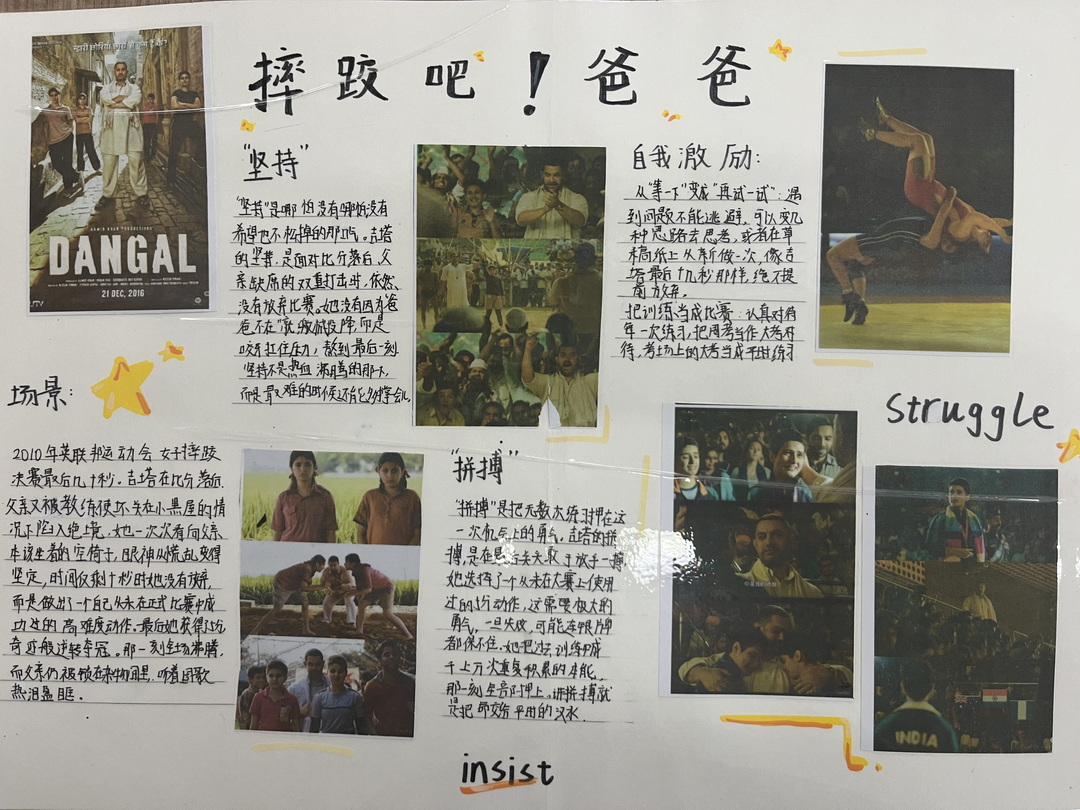 म्हारी छोरियां छोरों से कम हैं के?
DANGAL
21 DEC, 2016
UTV
摔跤吧！爸爸
"坚持"
"坚持"是哪怕没有哪怕没有
希望也不松掉的那口气。吉塔
的坚持,是面对比分落后,父
亲缺席的双重打击时,依然
没有放弃比赛。她没有因为爸
爸不在 就 投降而是
咬牙扛住压力,熬到最后一刻
坚持不是热血沸腾的那下,
而是最难的时候还能多撑会儿
自我激励:
从"等一下"变成"再试一试":遇
到问题不能逃避,可以变几
种思路去思考,或者在草
稿纸上从新做一次,像吉
塔最后十几秒那样,绝不提
前放弃。
把训练当成比赛:认真对待
每一次练习,把周考当作大考对
待,考场上的大考当成平时练习
场景:
2010年英联邦运动会 女子摔跤
决赛最后几十秒。吉塔在比分落后,
父亲又被教练使坏关在小黑屋的情
况下陷入绝境,她一次次看向父亲
本该坐着的空椅子,眼神从慌乱变得
坚定,时间仅剩十秒时她没有放弃,
而是做出了一个自己从未在正式比赛中成
功过的高难度动作。最后她获得5分
奇迹般逆转夺冠。那一刻全场沸腾,
而父亲仍被锁在杂物间里,听着国歌
热泪盈眶.
"拼搏"
"拼搏"是把无数次练习押在这
一次机会上的勇气。吉塔的拼
搏,是在 丢失 敢于放手一搏
她选择了个从未在大赛上使用
过的5分动作,这需要极大的
勇气,一旦失败,可能连银牌
都保不住。她把过去训练中成
千上万次重复积累的本能,
那一刻全部押上。拼搏就
是把 交给平时的汗水.
struggle
INDIA
insist